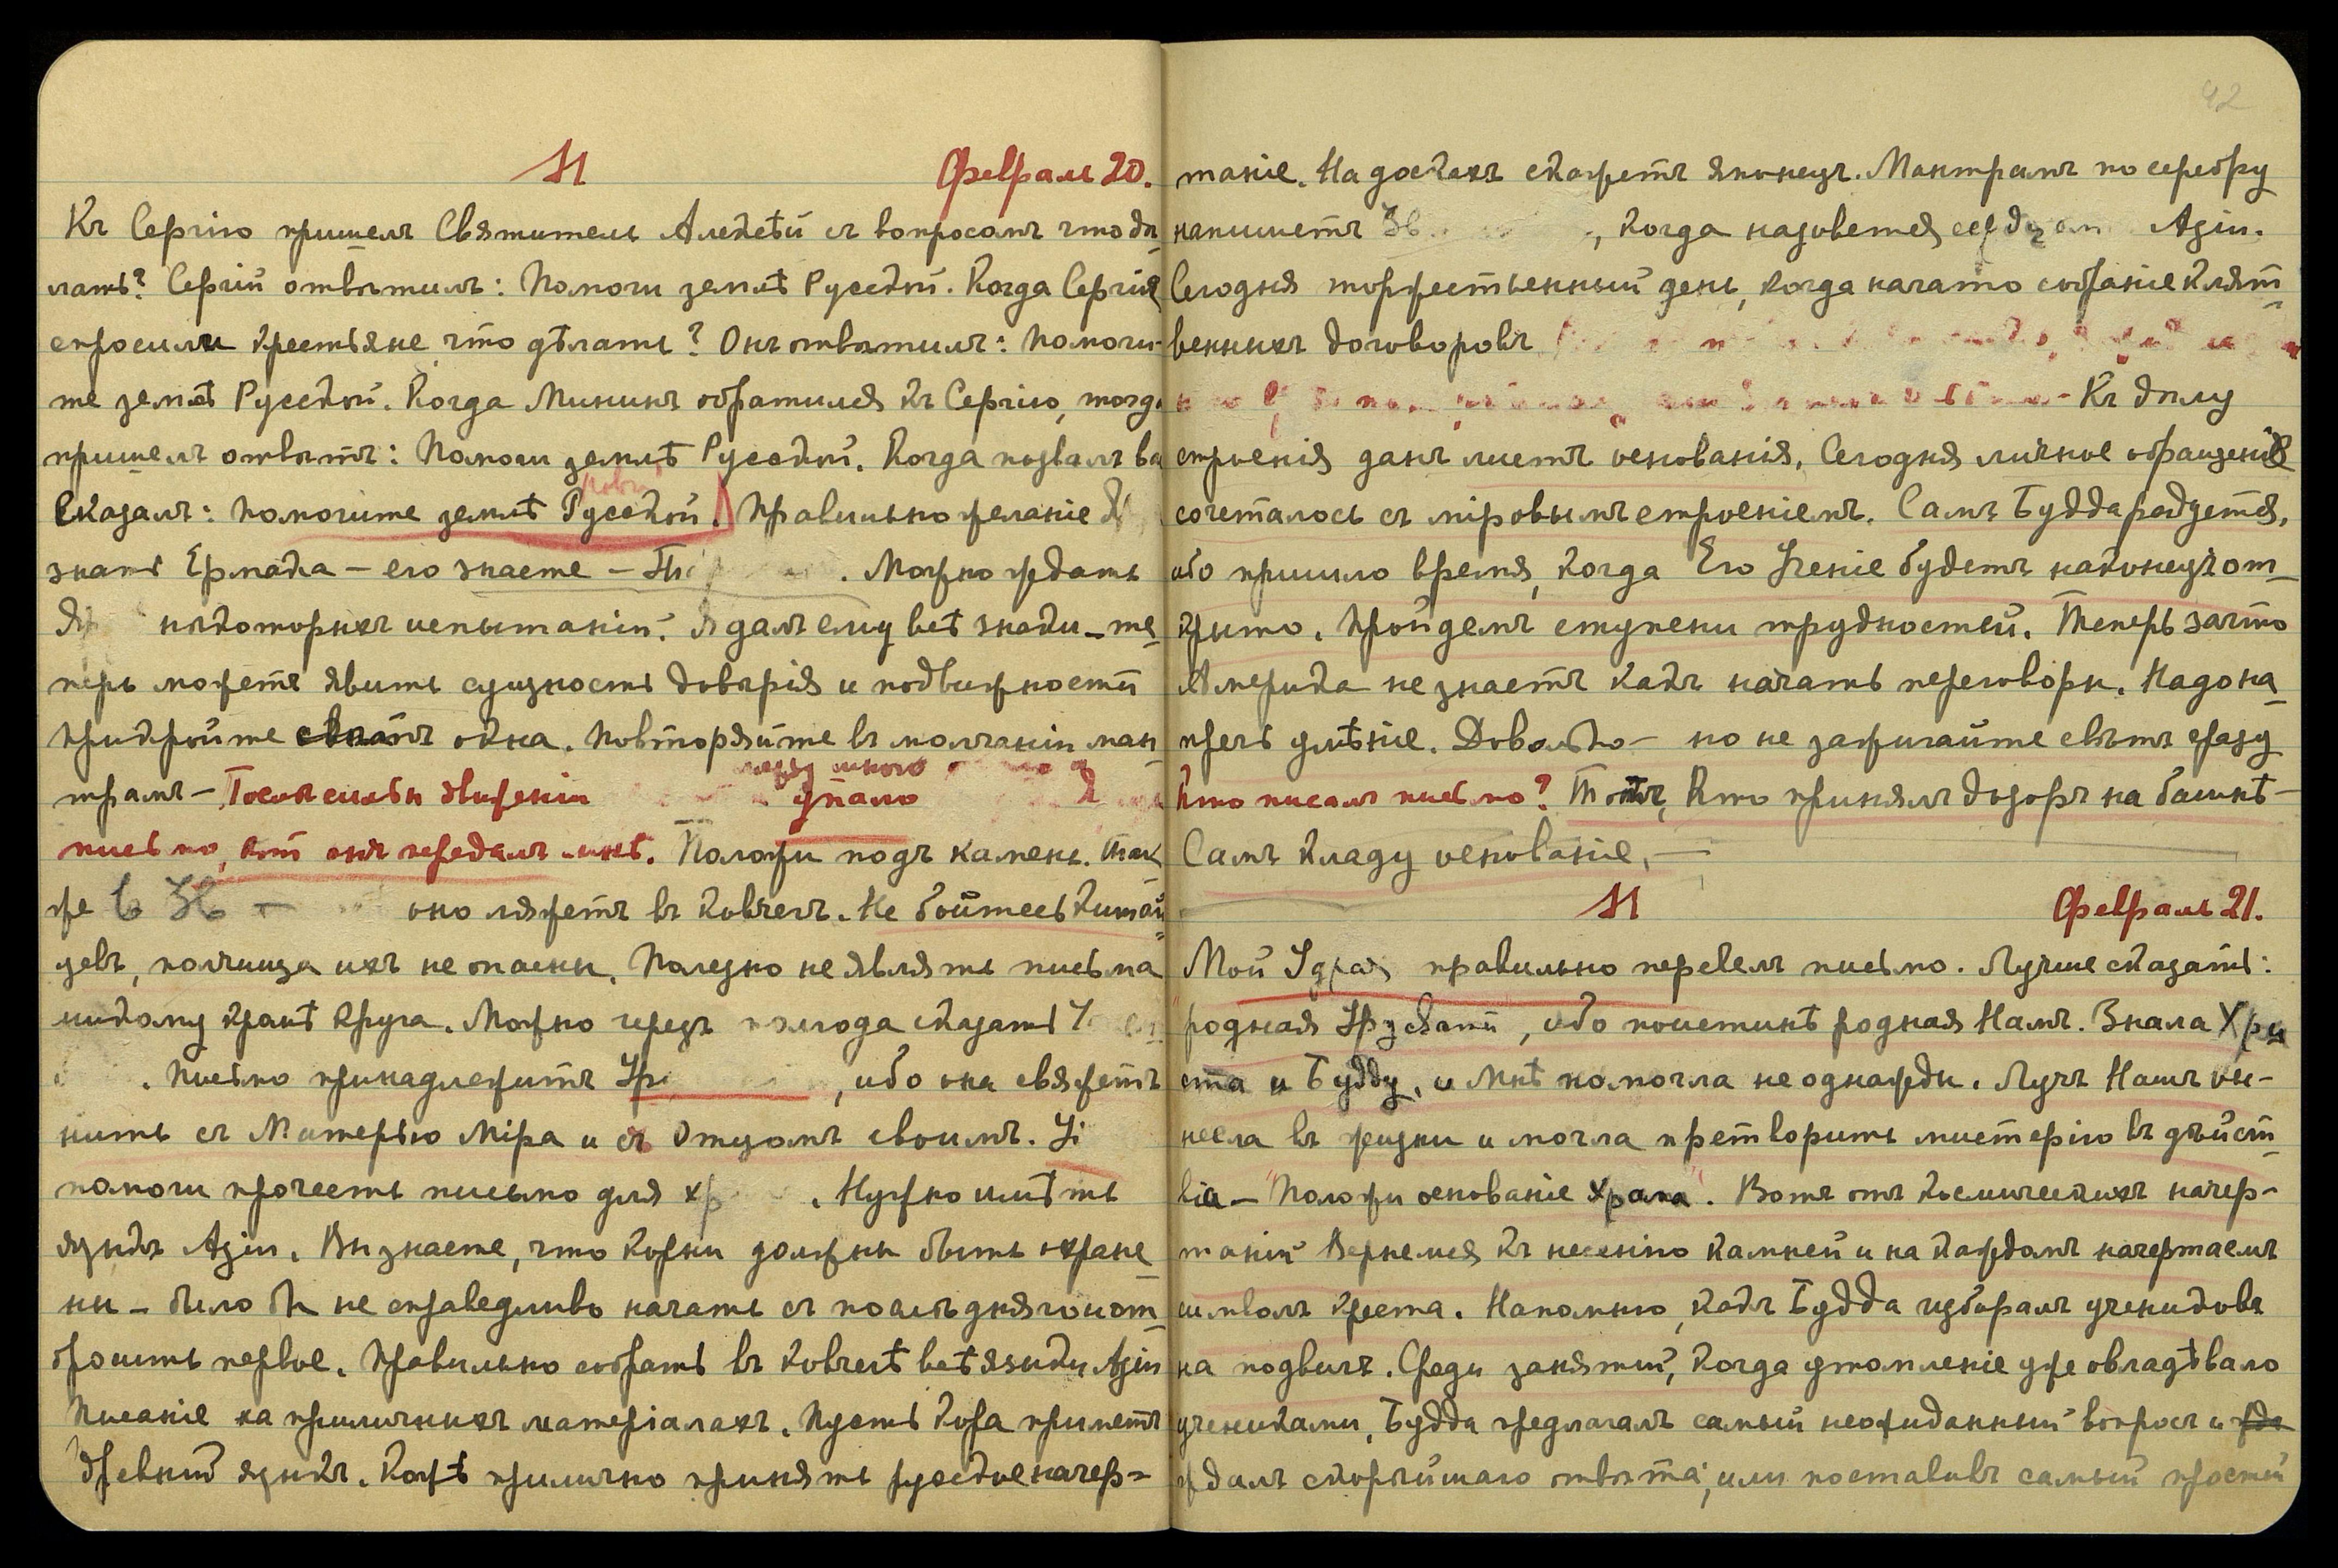 М
Февраль 20.
Къ Сергію пришелъ Святитель Алексѣй съ вопросомъ что дѣ-
лать? Сергій отвѣтилъ: Помоги землѣ Русской. Когда Сергія
спросили крестьяне что дѣлать? Онъ отвѣтилъ: Помоги-
те землѣ Русской. Когда Мининъ обратился къ Сергію, тогда
пришелъ отвѣтъ: Помоги землѣ Русской. Когда позвалъ ва
сказалъ: помогите землѣ Русской. Правильно желаніе
знать Ермака – его знаете – . Можно ждать
нѣкоторыхъ испытаній. Я далъ ему всѣ знаки – те-
перь можетъ явить сущность довѣрія и подвижности
Прикройте окна. Повторяйте въ молчаніи ман-
трамъ – Послѣ силы движенія упало
письмо, кот онъ передалъ мнѣ. Положи подъ камень. Так
же въ Зв оно ляжетъ въ ковчегъ. Не бойтесь китай-
цевъ, полчища ихъ не опасны. Полезно не являть письма
никому кромѣ круга. Можно черезъ полгода сказать
. Письмо принадлежитъ Ур , ибо она свяжетъ
нить съ Матерью Міра и съ Отцомъ своимъ.
помоги прочесть письмо для хр . Нужно имѣть
языкъ Азіи. Вы знаете, что корни должны быть охране-
ны – было бы не справедливо начать съ послѣдняго и от-
бросить первое. Правильно собрать въ ковчегѣ всѣ языки Азіи
Писаніе на приличныхъ матеріалахъ. Пусть кора приметъ
древній языкъ. Кожѣ прилично принять русское начер-
42
таніе. На доскахъ скажетъ японецъ. Мантрамъ по серебру
напишетъ Зв , когда назовется сердцемъ Азіи.
Сегодня торжественный день, когда начато собраніе клят-
венныхъ договоровъ
– Къ дому
строенія данъ листъ основанія. Сегодня личное обращеніе
сочеталось съ міровымъ строеніемъ. Самъ Будда радуется,
ибо пришло время, когда Его Ученіе будетъ наконецъ от-
крыто. Пройдемъ ступени трудностей. Теперь зачто
Америка не знаетъ какъ начать переговоры. Надо на-
пречь умѣніе. Довольно – но не зажигайте свѣтъ сразу
Кто писалъ письмо? Тотъ, Кто принялъ дозоръ на башнѣ –
Самъ кладу основаніе. –
М
Февраль 21.
Мой Удрая правильно перевелъ письмо. Лучше сказать:
"родная Урусвати, ибо поистинѣ родная Намъ. Знала Хри-
ста и Будду, и Мнѣ помогла не однажды. Лучъ Нашъ вы-
несла въ жизни и могла претворить мистерію въ дѣйст-
вія – "Положи основаніе храма". Вотъ отъ Космическихъ начер-
таній Вернемся къ несенію камней и на каждомъ начертаемъ
символъ креста. Напомню, какъ Будда избиралъ учениковъ
на подвигъ. Среди занятій, когда утомленіе уже овладѣвало
учениками, Будда предлагалъ самый неожиданный вопросъ и
ждалъ скорѣйшаго отвѣта; или поставивъ самый простой